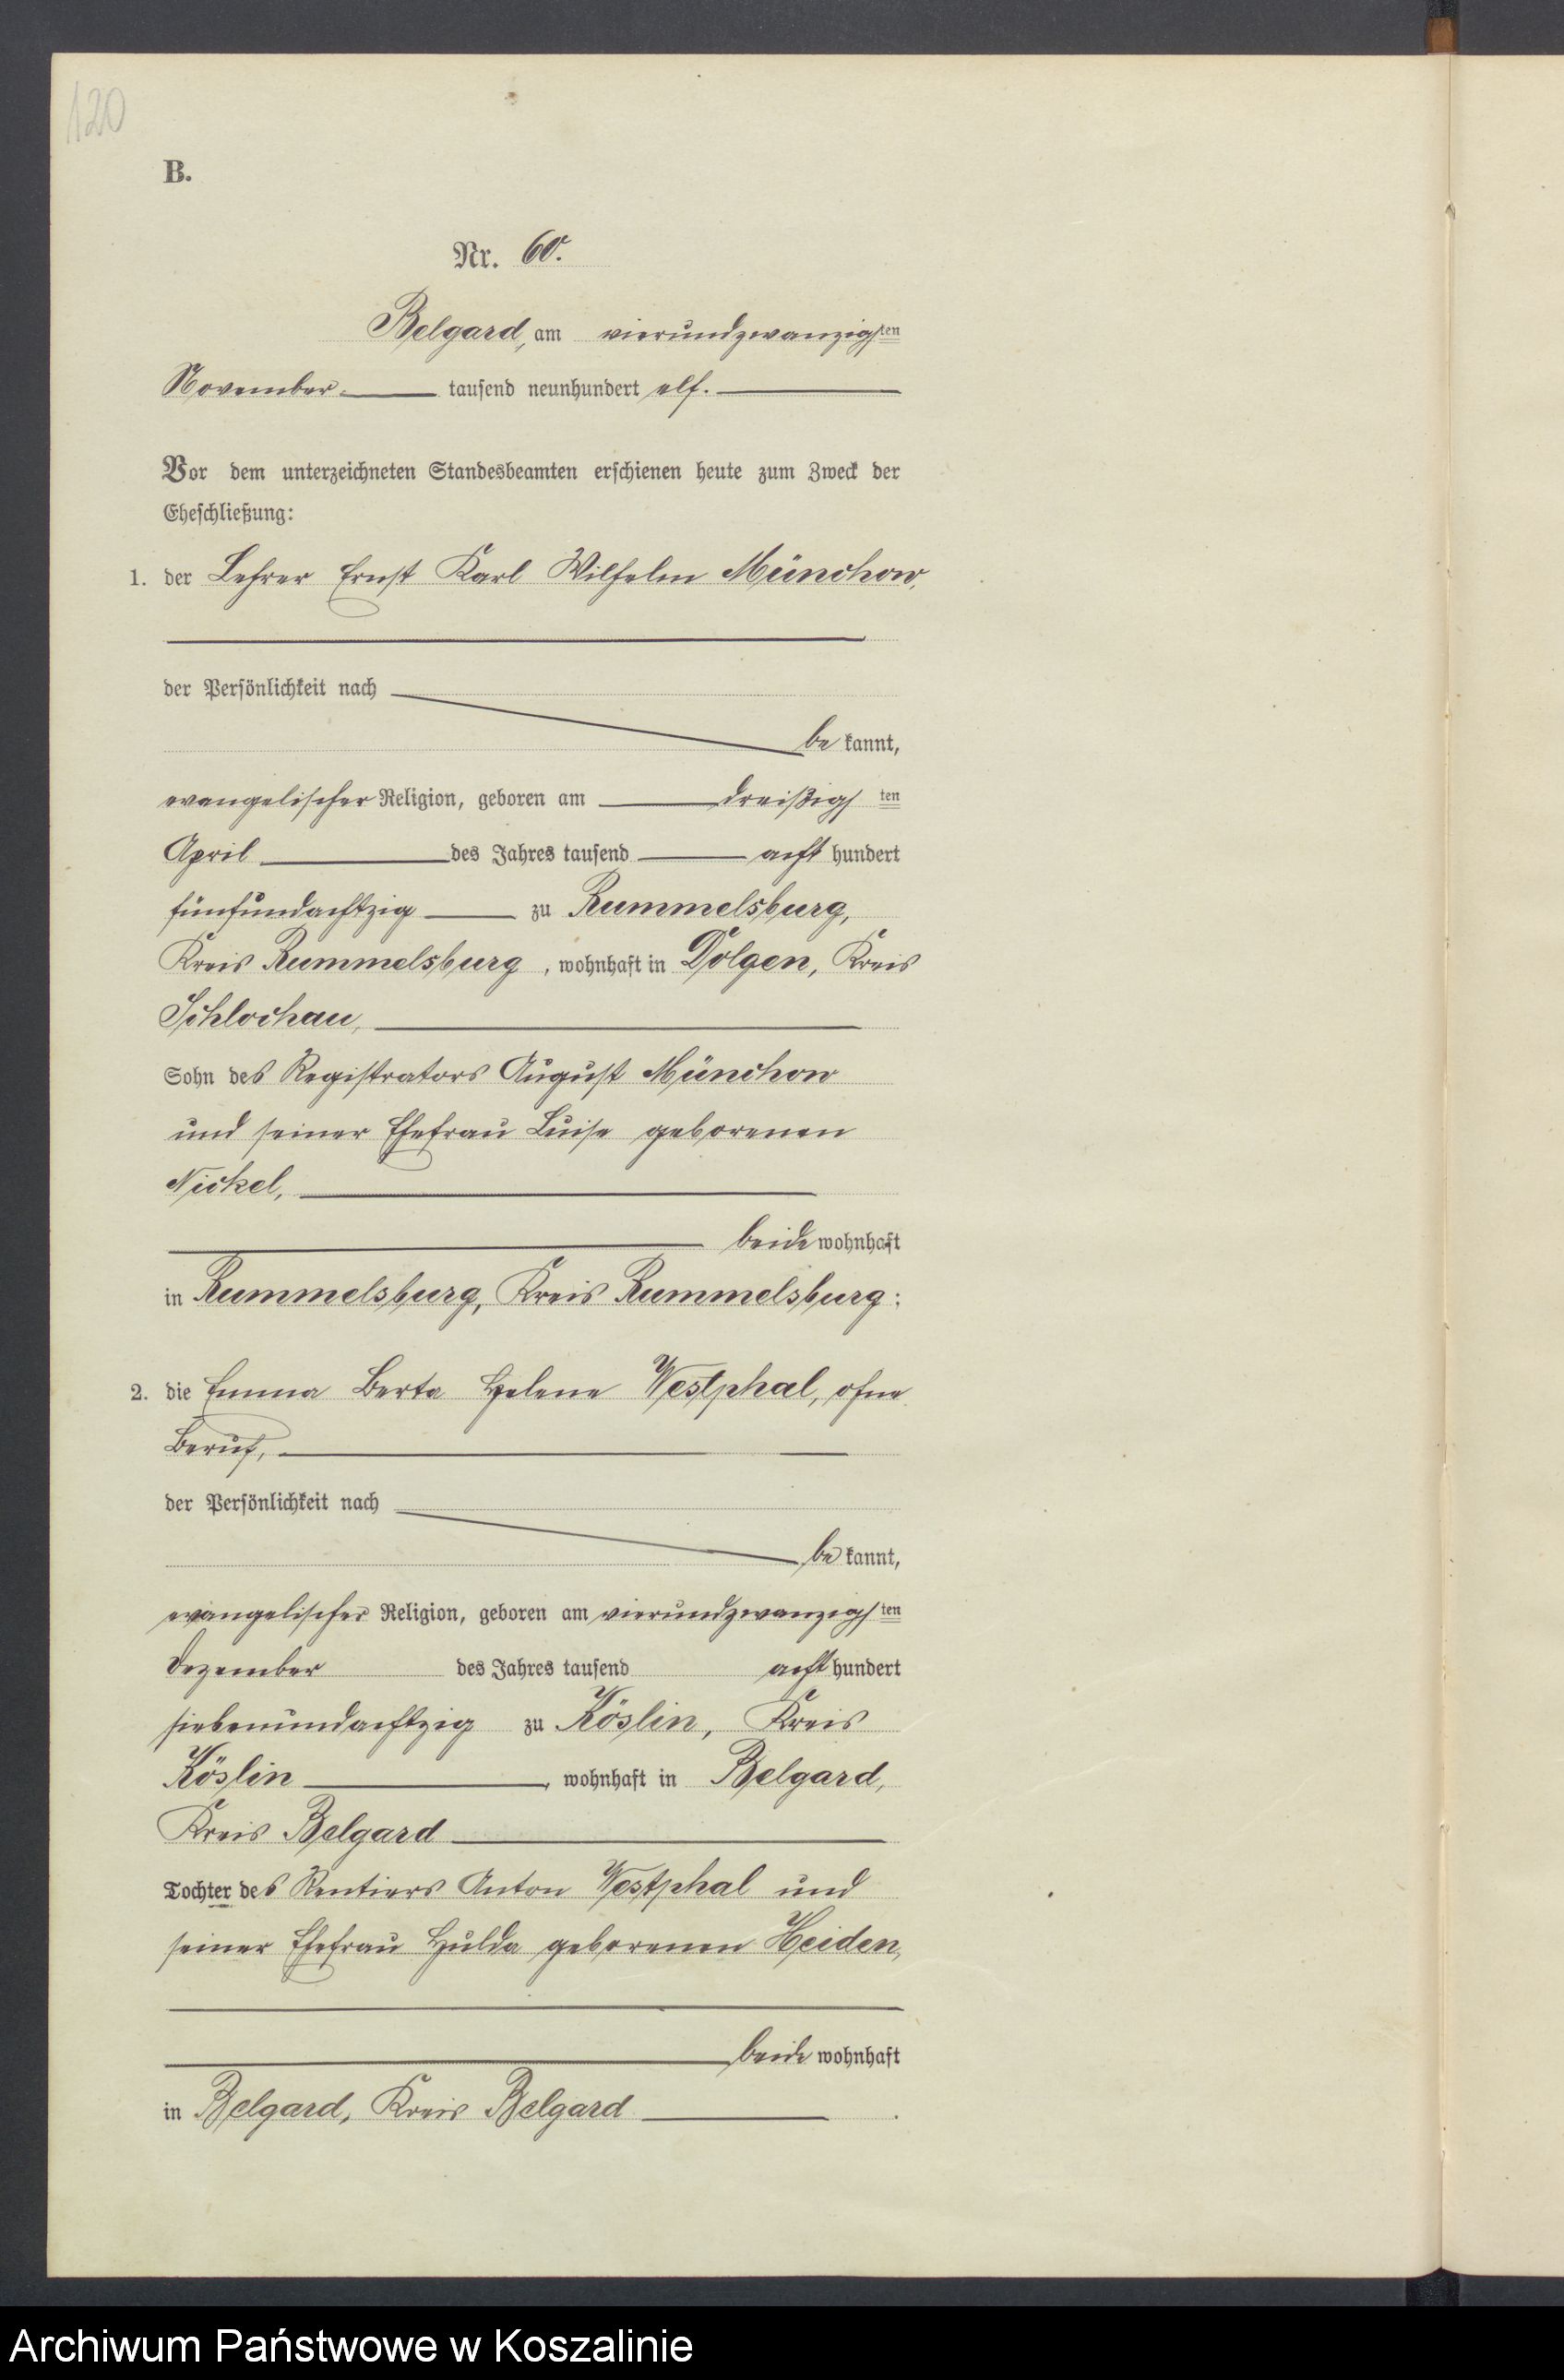 120
B.
Nr. 60.
Belgard, am vierundzwanzigsten
November tausend neunhundert elf.
Vor dem unterzeichneten Standesbeamten erschienen heute zum Zweck der
Eheschließung:
1. der Lehrer Ernst Karl Wilhelm Münchow,
der Persönlichkeit nach
bekannt,
evangelischer Religion, geboren am dreißigsten
April des Jahres tausend acht hundert
fünfundachtzig zu Rummelsburg,
Kreis Rummelsburg, wohnhaft in Dolgen, Kreis
Schlochau,
Sohn des Registrators August Münchow
und seiner Ehefrau Luise geborenen
Nickel,
beide wohnhaft
in Rummelsburg, Kreis Rummelsburg;
2. die Emma Berta Helene Westphal, ohne
Beruf,
der Persönlichkeit nach
bekannt,
evangelischer Religion, geboren am vierundzwanzigsten
Dezember des Jahres tausend acht hundert
siebenundachtzig zu Köslin, Kreis
Köslin, wohnhaft in Belgard,
Kreis Belgard
Tochter des Rentiers Anton Westphal und
seiner Ehefrau Hulda geborenen Heiden,
beide wohnhaft
in Belgard, Kreis Belgard.
Archiwum Państwowe w Koszalinie